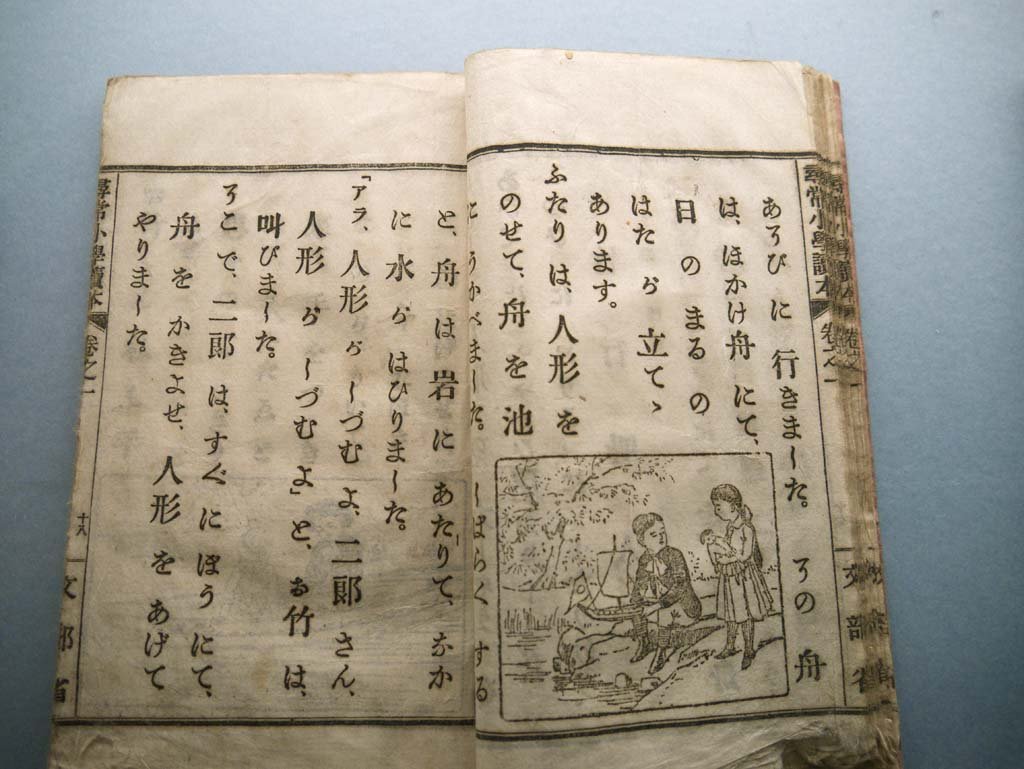 尋常小學讀本 卷之一 文部省
あそびに行きました。 その舟
は、ほかけ舟にて、
日のまるの
はたが立てゝ
あります。
ふたりは、人形を
のせて、舟を池
にうかべました。しばらくする
と、舟は岩にあたりて、なか
に水がはひりました。
「アラ、人形がしづむよ、二郎さん、
人形がしづむよ」と、お竹は、
叫びました。
そこで、二郎は、すぐにぼうにて、
舟をかきよせ、人形をあげて
やりました。
尋常小學讀本 卷之一 十八 文部省